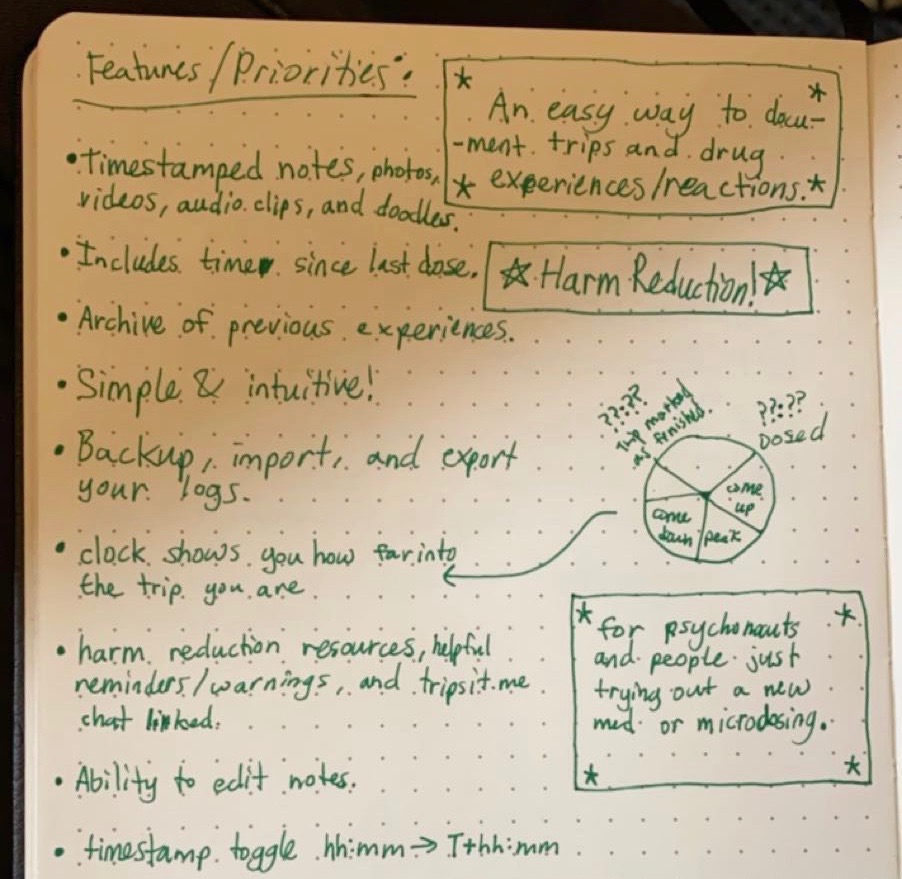 Features/Priorities:
* An easy way to docu-
-ment trips and drug
* experiences/reactions.*
• Timestamped notes, photos,
videos, audio clips, and doodles.
• Includes timer since last dose.
☆ Harm Reduction! ☆
• Archive of previous experiences.
• Simple & intuitive!
• Backup, import, and export
your logs.
??:??
Trip marked
as finished.
??:??
Dosed
come
up
peak
come
down
• clock shows you how far into
the trip you are.
• harm reduction resources, helpful
reminders/warnings, and tripsit.me
chat linked.
* for psychonauts *
and people just
trying out a new
med or microdosing.
* *
• Ability to edit notes.
• timestamp toggle hh:mm → T+hh:mm